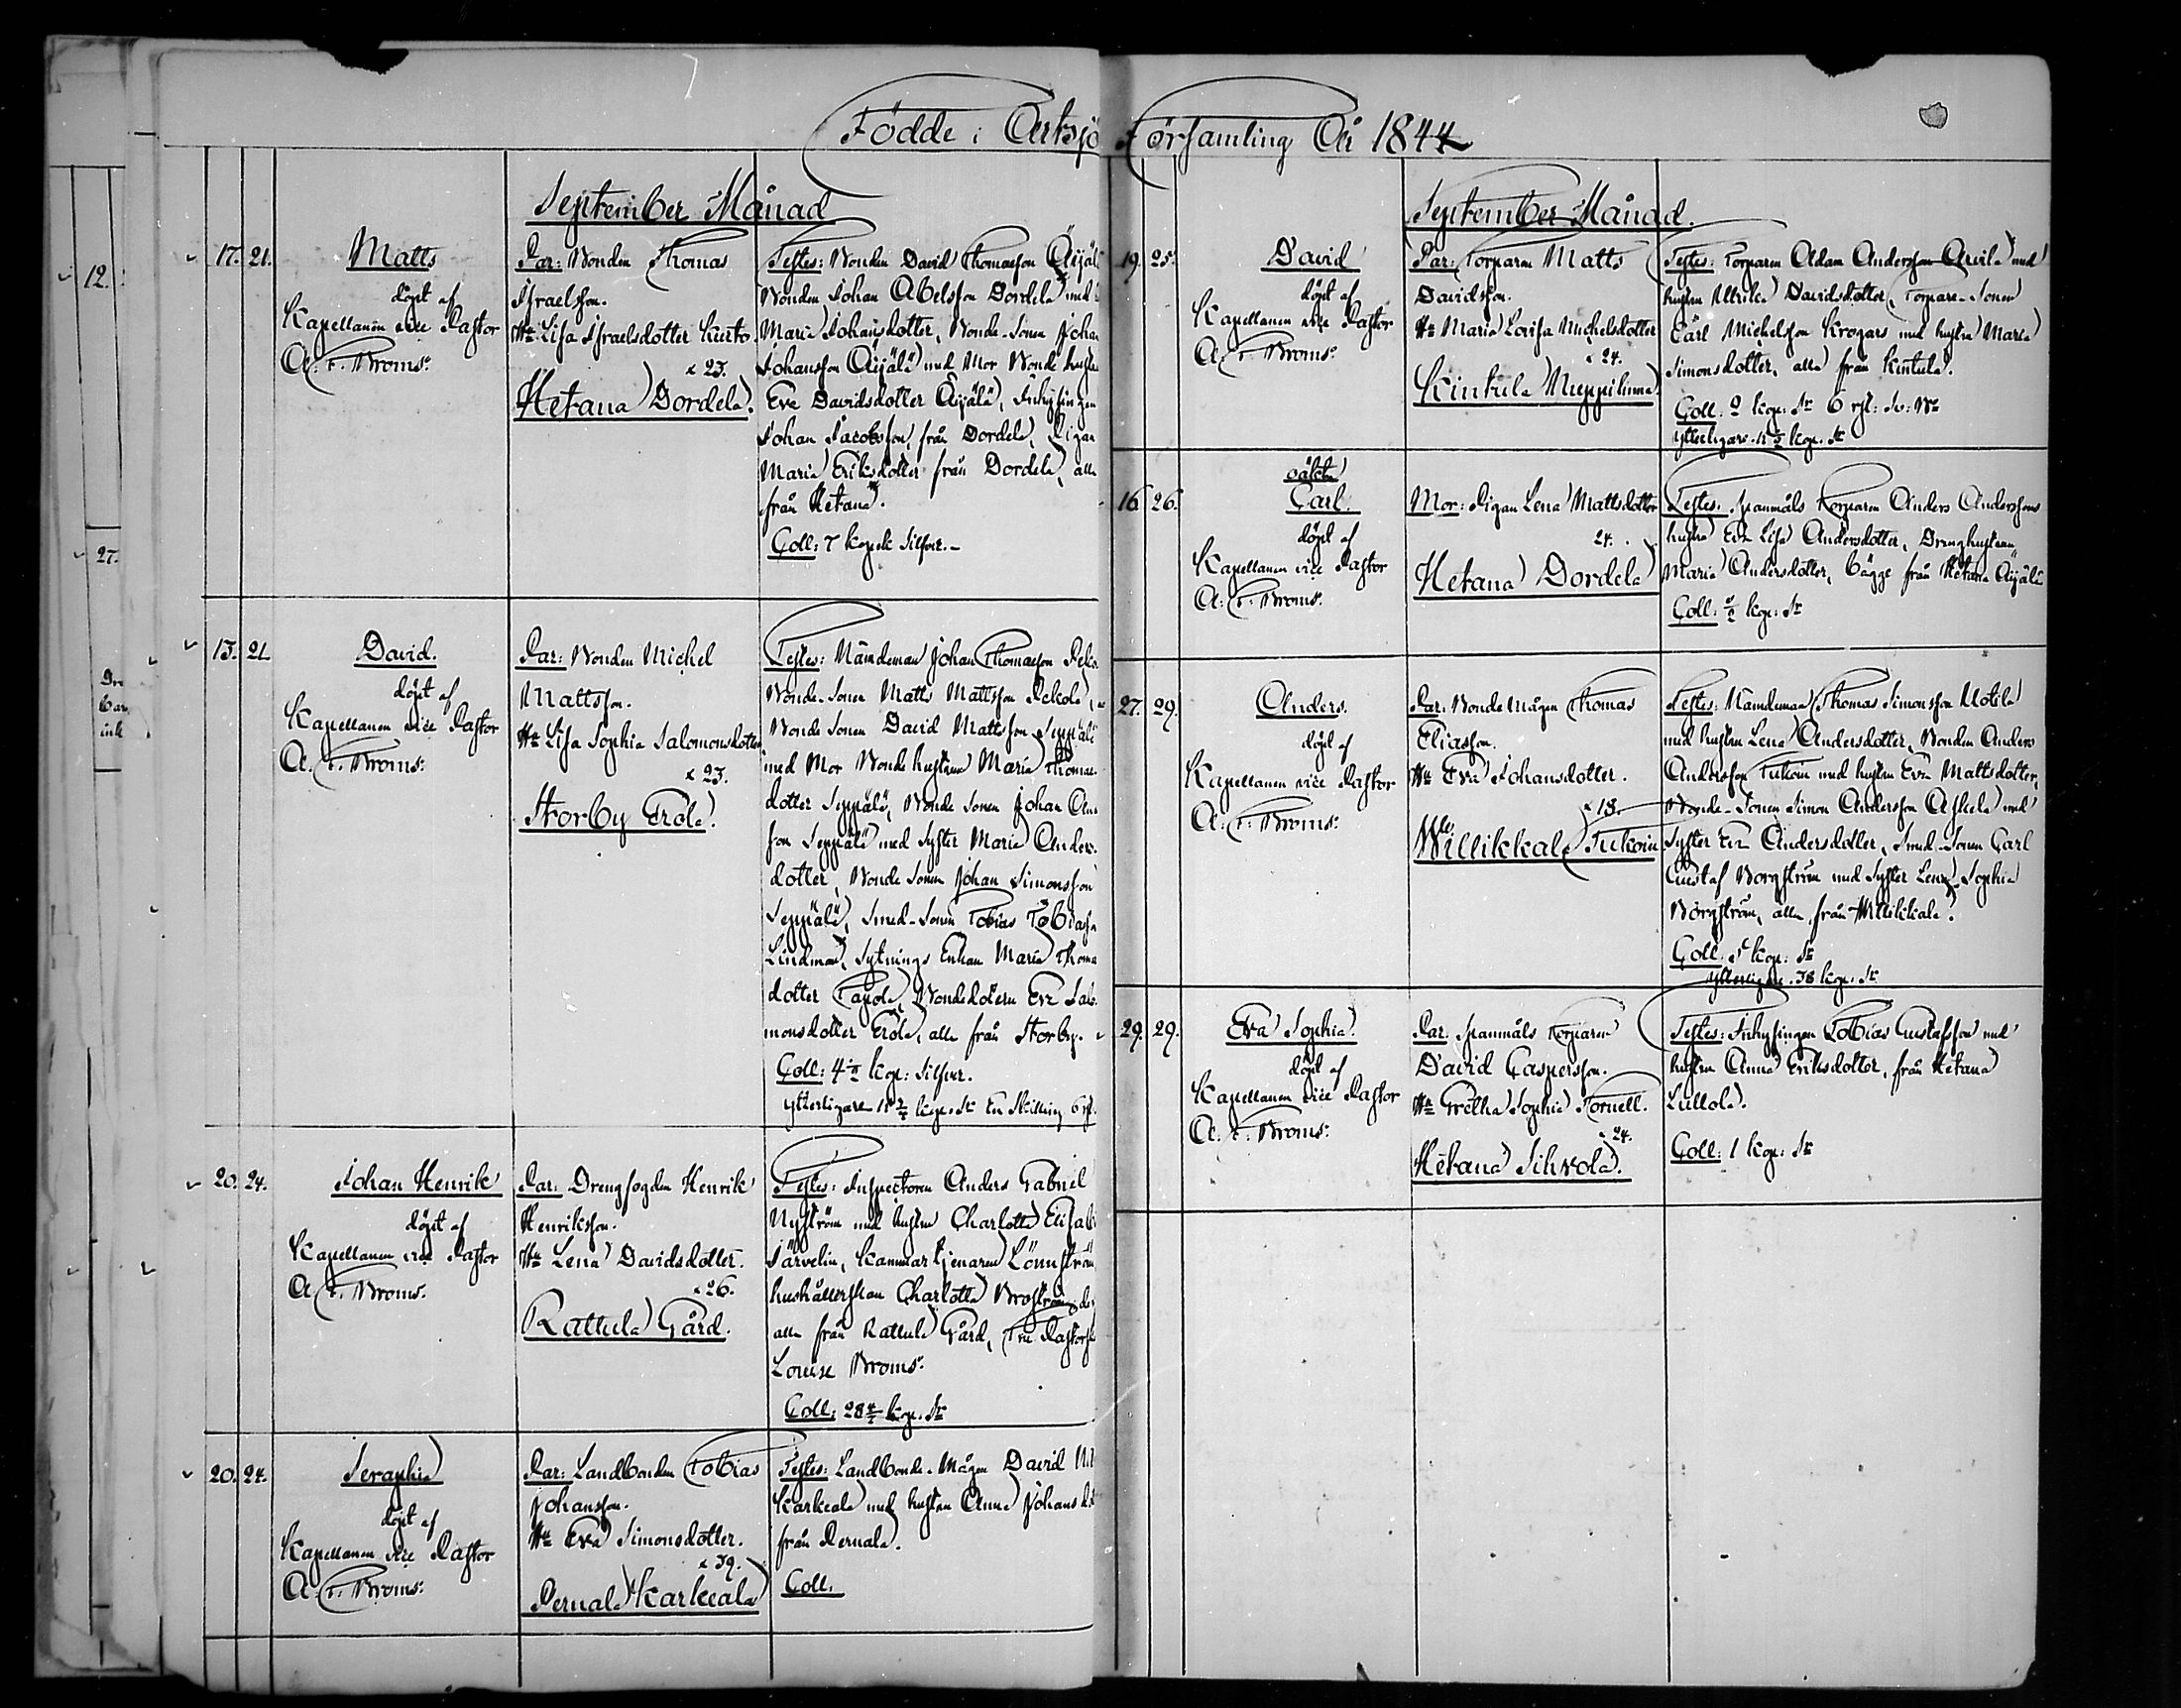 Födde i Artsjö Församling År 1844
September Månad
17. 21.
Matts
döpt af
Kapellanen vice Pastor
A. F. Broms.
Par: Bonden Thomas
Israelsson.
Hu Lisa Israelsdotter Kurto
23.
Hetana Dordela.
Testes: Bonden David Thomasson Äijälä
Bonden Johan Abelsson Dordela med
Maria Johansdotter, Bonde-Sonen Johan
Johansson Äijälä med Mor Bonde hustru
Eva Davidsdotter Äijälä, Inhysingen
Johan Jacobsson från Dordela, Pigan
Maria Eriksdotter från Dordela, alla
från Hetana.
Coll: 7 kopek Silfver.
13. 21
David.
döpt af
Kapellanen vice Pastor
A. F. Broms.
Par: Bonden Michel
Mattsson.
Hu Lisa Sophia Salomonsdotter
23.
Storby Erola.
Testes: Nämdeman Johan Thomasson
Bonde-Sonen Matts Mattsson
Bonde Sonen David Mattsson Seppälä
med Mor Bonde hustrun Maria Thomas
dotter Seppälä, Bonde Sonen Johan An
son Seppälä med Syster Maria Anders
dotter, Bonde Sonen Johan Simonsson
Seppälä, Smed-Sonen Tobias Tobiasson
Lindman, Sytnings Enkan Maria Thoma
dotter Tapola, Bondedotern Eva Salo
monsdotter Erola, alla från Storby.
Coll: 4 kop: Silfver.
ytterligare kop. Sr En Skilling 6
20. 24.
Johan Henrik
döpt af
Kapellanen vice Pastor
A. F. Broms.
Par: Drengfogden Henrik
Henriksson.
Hu Lena Davidsdotter.
26.
Rattula Gård.
Testes: Inspectoren Anders Gabriel
Nyström med hustru Charlotta Elisab
Järvelin, Kammartjenaren Lönnström
hushållerskan Charlotta Broström
alla från Rattula Gård, Fru Pastorskan
Louise Broms.
Coll: 28 kop. Sr
20. 24.
Seraphia
döpt af
Kapellanen vice Pastor
A. F. Broms.
Par: Landbonden Tobias
Johansson.
Hu Eva Simonsdotter.
39.
Pernala Karkeala
Testes: Landbonde-Mågen David
Karkeala med hustru Anna Johansd
från Pernala.
Coll.
September Månad.
19. 25.
David
döpt af
Kapellanen vice Pastor
A. F. Broms.
Par: Torparen Matts
Davidsson.
Hu Maria Lovisa Michelsdotter
24.
Kintula Nuppilinna.
Testes: Torparen Adam Andersson Arvila med
hustru Ulrika Davidsdotter, Torpare-Sonen
Carl Michelsson Krogars med hustru Maria
Simonsdotter, alla från Kintula.
Coll: 2 kop: Sr 6
ytterligare kop. Sr
16 26.
oäkta
Carl.
döpt af
Kapellanen vice Pastor
A. F. Broms.
Mor: Pigan Lena Mattsdotter
24.
Hetana Dordela
Testes: Spanmåls Torparen Anders Anderssons
hustru Eva Lisa Andersdotter, Drenghustrun
Maria Andersdotter, bägge från Hetana Äijälä
Coll: kop: Sr
27. 29.
Anders.
döpt af
Kapellanen vice Pastor
A. F. Broms.
Par: Bonde Mågen Thomas
Eliasson.
Hu Eva Johansdotter.
18.
Willikkala Tukoin
Testes: Nämdeman Thomas Simonsson Uotila
med hustru Lena Andersdotter, Bonden Anders
Andersson Tukoin med hustru Eva Mattsdotter,
Bonde-Sonen Simon Andersson Askela med
Syster Eva Andersdotter, Smed-Sonen Carl
Gustaf Borgström med Syster Lena Sophia
Borgström, alla från Willikkala.
Coll. kop: Sr
ytterligare 38 kop. Sr
29. 29.
Eva Sophia.
döpt af
Kapellanen vice Pastor
A. F. Broms.
Par. Spanmåls Torparen
David Caspersson.
Hu Gretha Sophia Tornell.
24.
Hetana Sihvola.
Testes: Inhysingen Tobias Gustafsson med
hustru Anna Eriksdotter, från Hetana
Lullola.
Coll: 1 kop: Sr
12.
27.